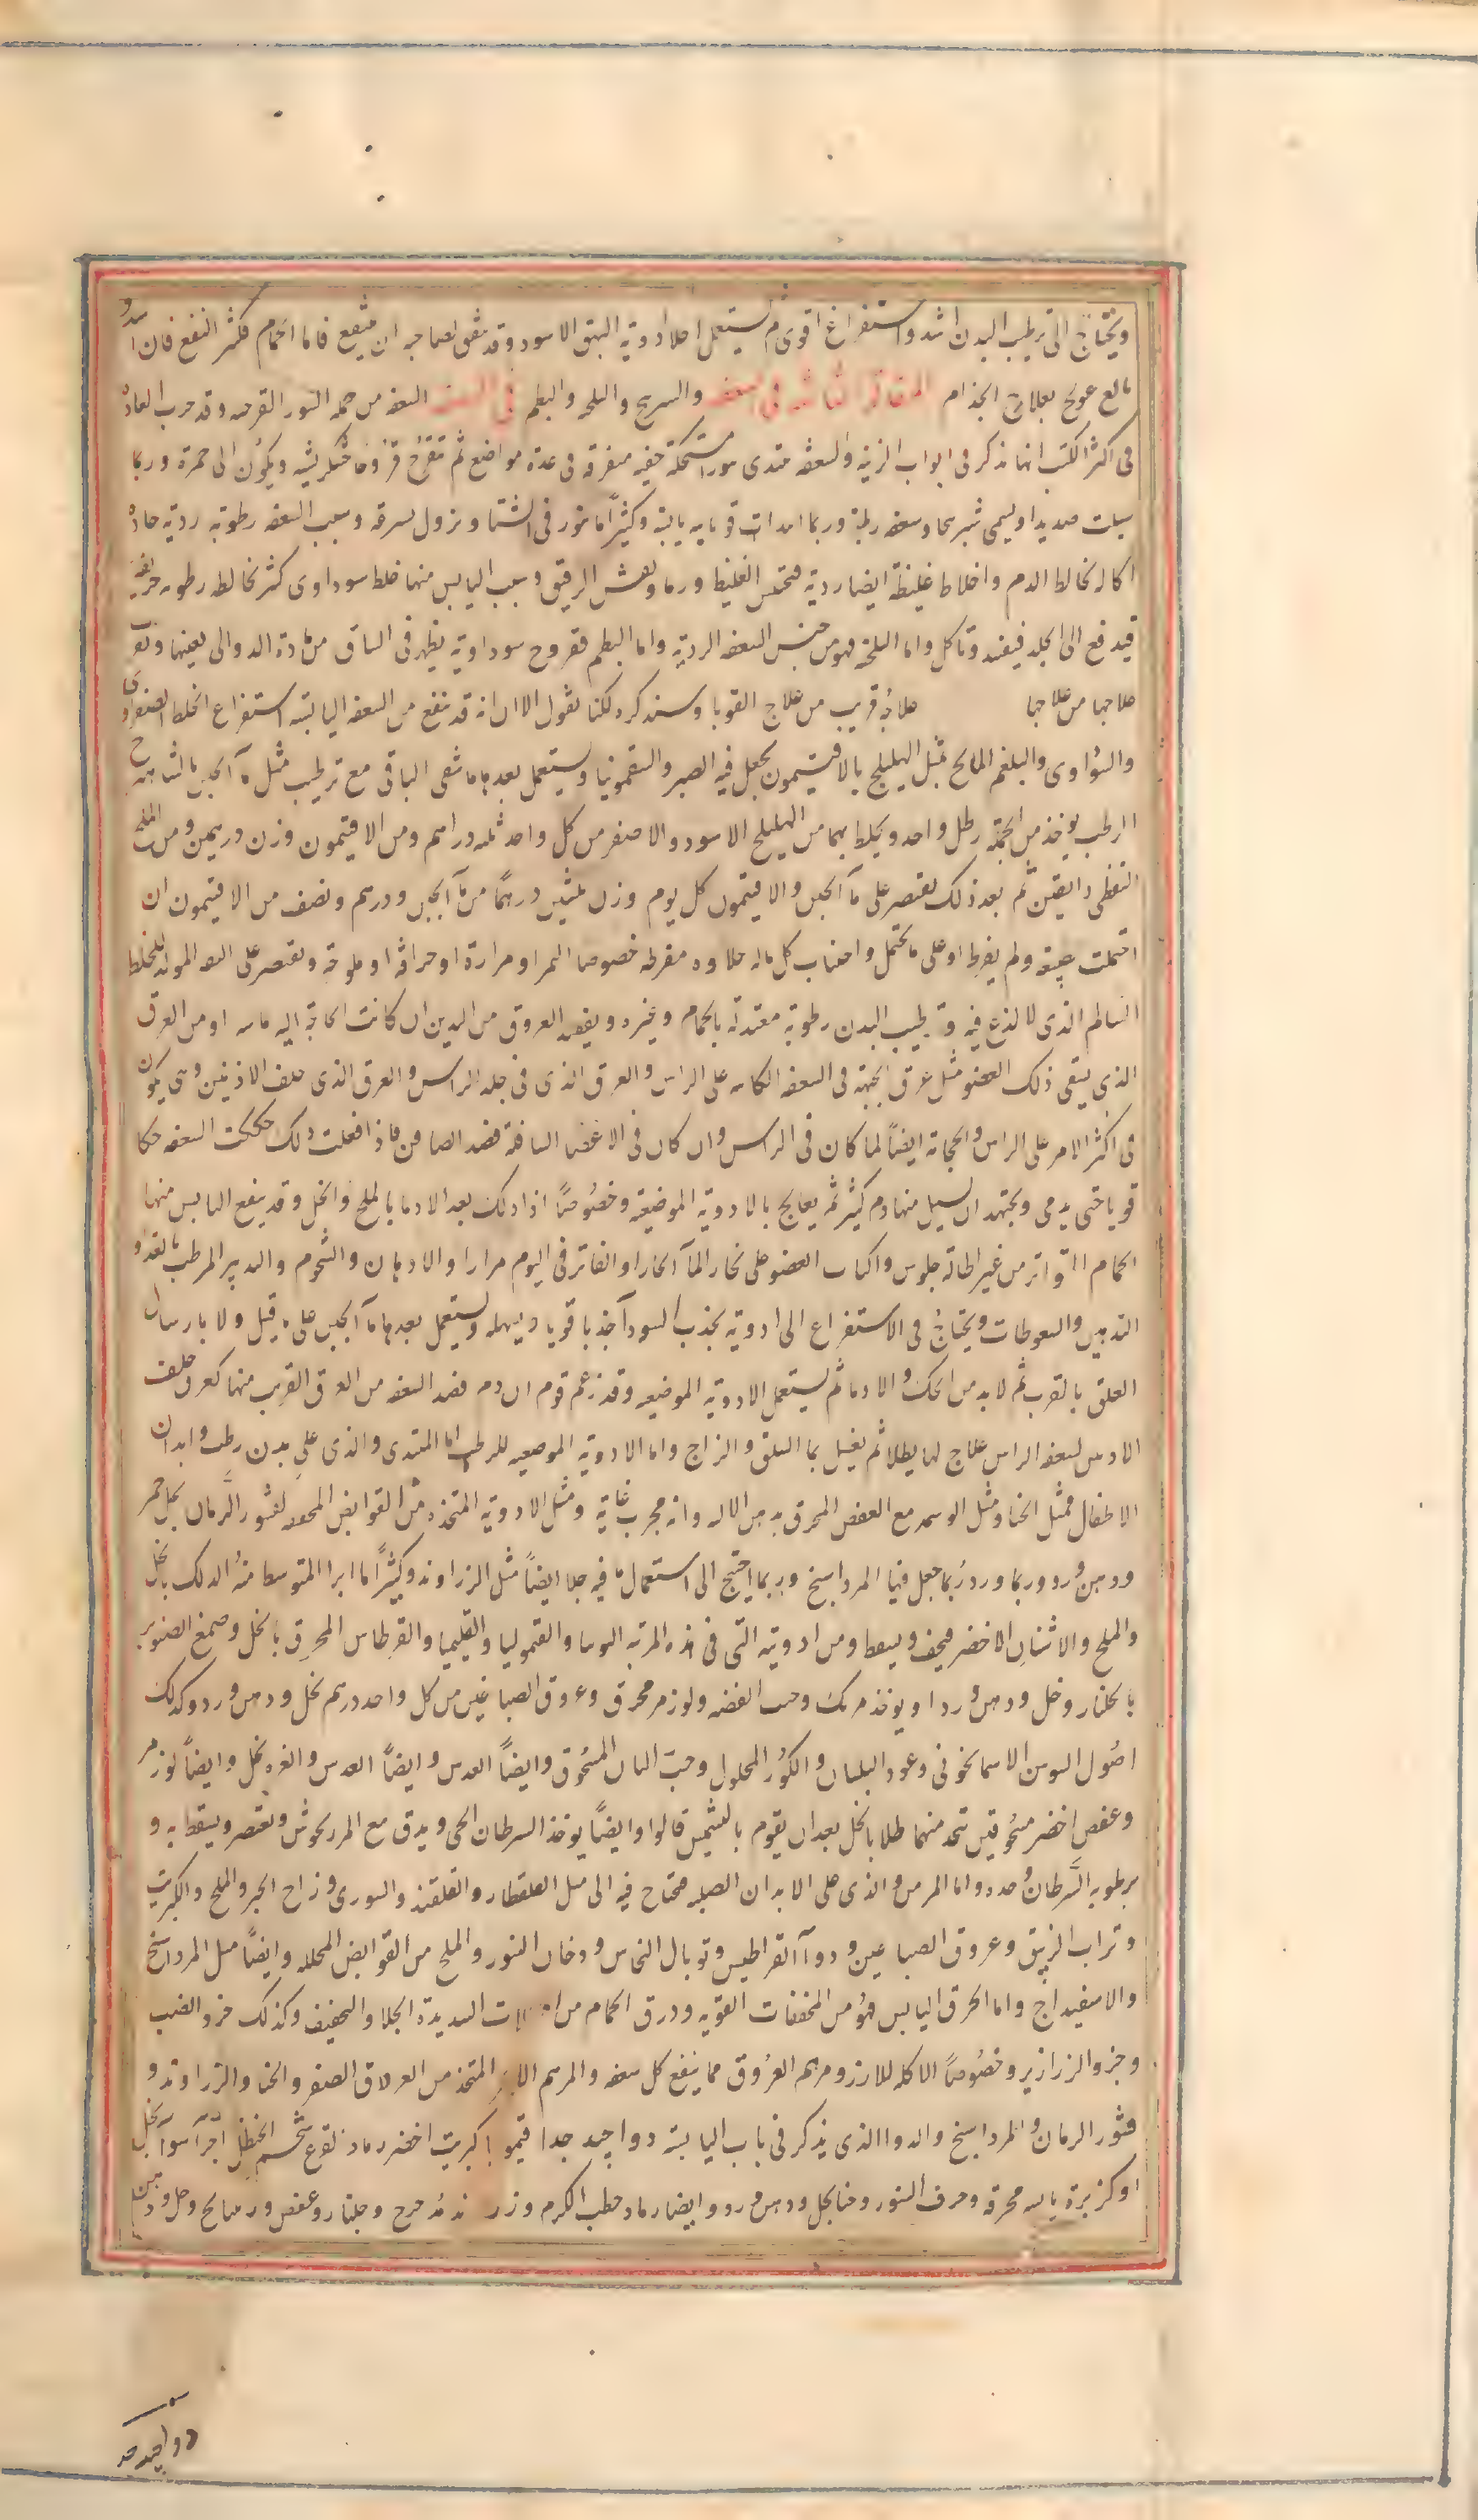 ويحتاج الى ترطيب البدن اشد واستفراغ اقوى ثم يستعمل اطلا ادوية البهق الاسود وقد ينتفع اصحابه ان ينتفع فاما الحمام فكثير النفع فان اسرف
بالغ عولج بعلاج الجذام المقالة الثالثة فى السعفة والشيرينج والبلخية والبطم فى السعفة السعفة من جملة البثور القرحية وقد جرت العادة
فى اكثر الكتب انها تذكر فى ابواب الزينة والسعفة تبتدى بثورا مستحكة خفيفة متفرقة فى عدة مواضع ثم تتقرح قروحا خشكريشية ويكون الى حمرة وربما
سيلت صديدا ويسمى شيرينجا وسعفة رطبة وربما ابتدات قوبايية يابسة وكثيرا ما تثور فى الشتا وتزول بسرعة وسبب السعفة رطوبة ردية حادة
اكالة تخالط الدم واخلاط غليظة ايضا ردية فتحتبس الغليظ ورما وتفش الرقيق وسبب اليابس منها خلط سوداوى كثير تخالطه رطوبة حريفة
فيدفع الى الجلد فيفسد وتاكل واما البلخية فهو من جنس السعفة الردية واما البطم فقروح سوداوية يظهر فى الساق من مادة الدوالى بعينها وتقرب
علاجها من علاجها علاجه قريب من علاج القوبا وسنذكره لكنا نقول الان انه قد ينفع من السعفة اليابسة استفراغ الخلط الصفراوى
والسوداوى والبلغم المالح بمثل الهليلج بالافتيمون يجعل فيه الصبر والسقمونيا ويستعمل بعدها ما شفى الباقى مع ترطيب مثل مآ الجبن بالشاهترج
الرطب يوخذ من الجملة رطل واحد ويخلط بهما من الهليلج الاسود والاصفر من كل واحد ثلثة دراهم ومن الافتيمون وزن درهمين ومن الملح
النفطى دانقين ثم بعد ذلك يقتصر على مآ الجبن والافتيمون كل يوم وزن ثلثين درهما من مآ الجبن ودرهم ونصف من الافتيمون ان
احتملت طبيعته ولم يفرط او على ما يحتمل واجتناب كل ماله حلاوة مفرطة خصوصا التمر او مرارة او حرافة او ملوحة ويقتصر على التفه المولد للخلط
السالم الذى لا لذع فيه وترطيب البدن رطوبة معتدلة بالحمام وغيره ويفصد العروق من اليدين ان كانت الحاجة اليه ماسة او من العرق
الذى يسقى ذلك العضو مثل عرق الجبهة فى السعفة الكاينة على الراس والعرق الذى فى جلد الراس والعرق الذى خلف الاذنين وهى يكون
فى اكثر الامر على الراس والحجامة ايضا لما كان فى الراس وان كان فى الاعضا السافلة فصد الصافن فاذا فعلت ذلك حككت السعفة حكا
قويا حتى يدمى ويجتهد ان يسيل منها دم كثير ثم يعالج بالادوية الموضعية وخصوصا اذا دلك بعد الادما بالملح والخل وقد ينفع اليابس منها
الحمام المتواتر من غير اطالة جلوس واكباب العضو على بخار المآ الحار او الفاتر فى اليوم مرارا والادهان والشحوم والتدبير المرطب بالغذا و
التدهين والسعوطات ويحتاج فى الاستفراغ الى ادوية يجذب السودآ جذبا قويا ويسهله ويستعمل بعدها مآ الجبن على ما قيل ولا بارسال
العلق بالقرب ثم لا بد من الحك والادما ثم يستعمل الادوية الموضعية وقد زعم قوم ان دم فصد السعفة من العرق القريب منها كعرق خلف
الاذن لسعفة الراس علاج لها يطلا ثم يغسل بما السلق والزاج واما الادوية الموضعية للرطب اما المبتدى والذى على بدن رطب وابدان
الاطفال فمثل الحنا ومثل الوسمة مع العفص المحرق بدهن الالية وانه مجرب غاية ومثل الادوية المتخذة من القوابض المجففة لقشور الرمان بخل خمر
ودهن ورد وربما ورد ربما جعل فيها المرداسنج وربما احتيج الى استعمال ما فيه جلا ايضا مثل الزراوند وكثيرا ما ابرا المتوسط منه الدلك بالخل
والملح والاشنان الاخضر فيجف ويسقط ومن ادويته التى فى هذه المرتبة التوتيا والقيموليا والقليميا والقرطاس المحرق بالخل وصمغ الصنوبر
بالجلنار وخل ودهن ورد او يوخذ مرتك وخبث الفضة ولوز مر محرق وعروق الصباغين من كل واحد درهم بخل ودهن ورد وكذلك
اصول السوسن الاسمانجونى وعود البلسان والكور المحلول وحب البان المسحوق وايضا العدس وايضا العدس والغرة بخل وايضا لوز مر
وعفص اخضر مسحوقين تتخذ منهما طلا بالخل بعد ان يقوم بالتشميس قالوا وايضا يوخذ السرطان الحى ويدق مع المردكوش ويعتصر ويسقط به و
برطوبة السرطان وحده واما المزمن والذى على الابدان الصلبة فيحتاج فيه الى مثل القلقطار والقلقند والسورى وزاج الحبر والملح والكبريت
وتراب الزيبق وعروق الصباغين ودوآ القراطيس وتوبال النحاس ودخان التنور والملح من القوابض المحللة وايضا مثل المرداسنج
والاسفيداج واما الخرق اليابس فهو من المجففات القوية وذرق الحمام من الشديدة الجلا والتجفيف وكذلك خرو الضب
وخرو الزرازير وخصوصا الاكلة للارز ومرهم العروق مما ينفع كل سعفة والمرهم المتخذ من العروق الصفر والحنا والزراوند و
قشور الرمان والمرداسنج والدوا الذى يذكر فى باب اليابسة دوا جيد جدا قيموليا كبريت اخضر رماد القرع شحم الحنظل اجزآ سوآ بخل
او كزبرة يابسة محرقة وخزف التنور وحنا بخل ودهن ورد وايضا رماد حطب الكرم وزراوند مدحرج وجلنار وعفص وراتيانج وخل ودهن
دوا جيد جدا